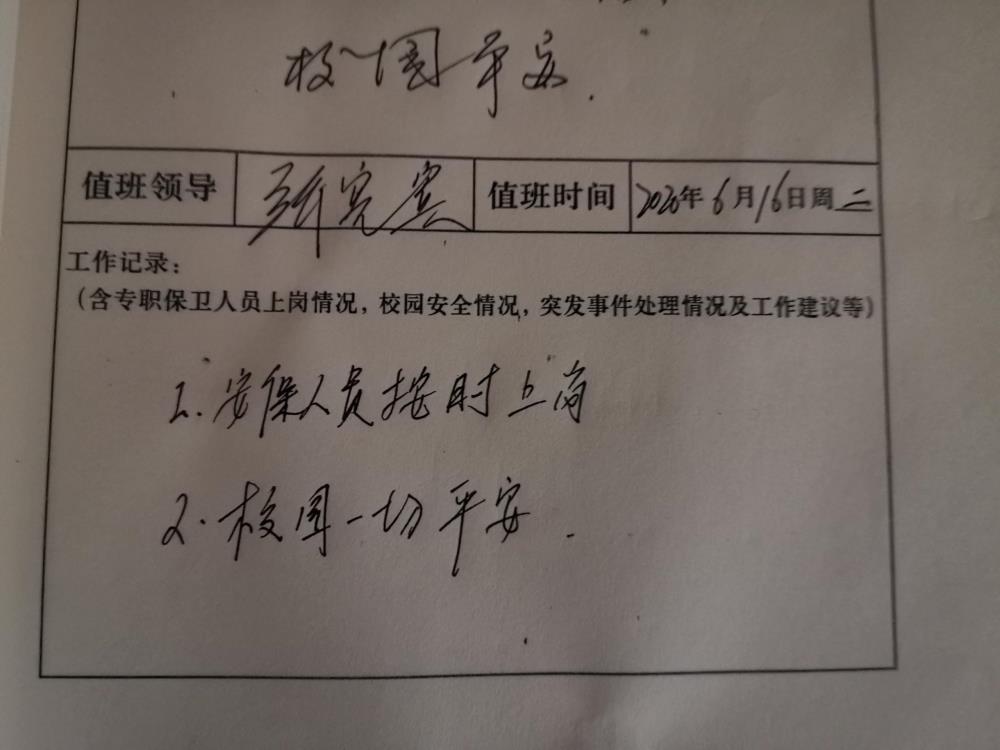 校园平安.
值班领导 值班时间 2020年6月16日周二
工作记录:
(含专职保卫人员上岗情况, 校园安全情况, 突发事件处理情况及工作建议等)
1. 安保人员按时上岗
2. 校园一切平安.